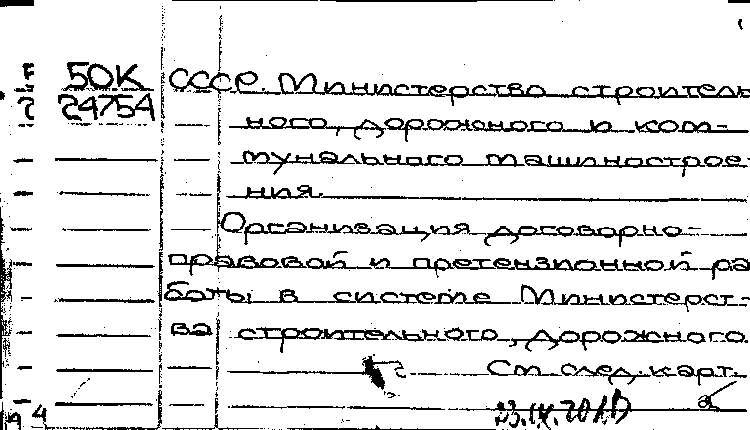 50К СССР. Министерство строитель
24754 ного, дорожного и ком-
мунального машинострое
ния.
Организация договорно-
правовой и претензионной ра
боты в системе Министерст-
ва строительного, дорожного
См. след. карт.
23.IX.70